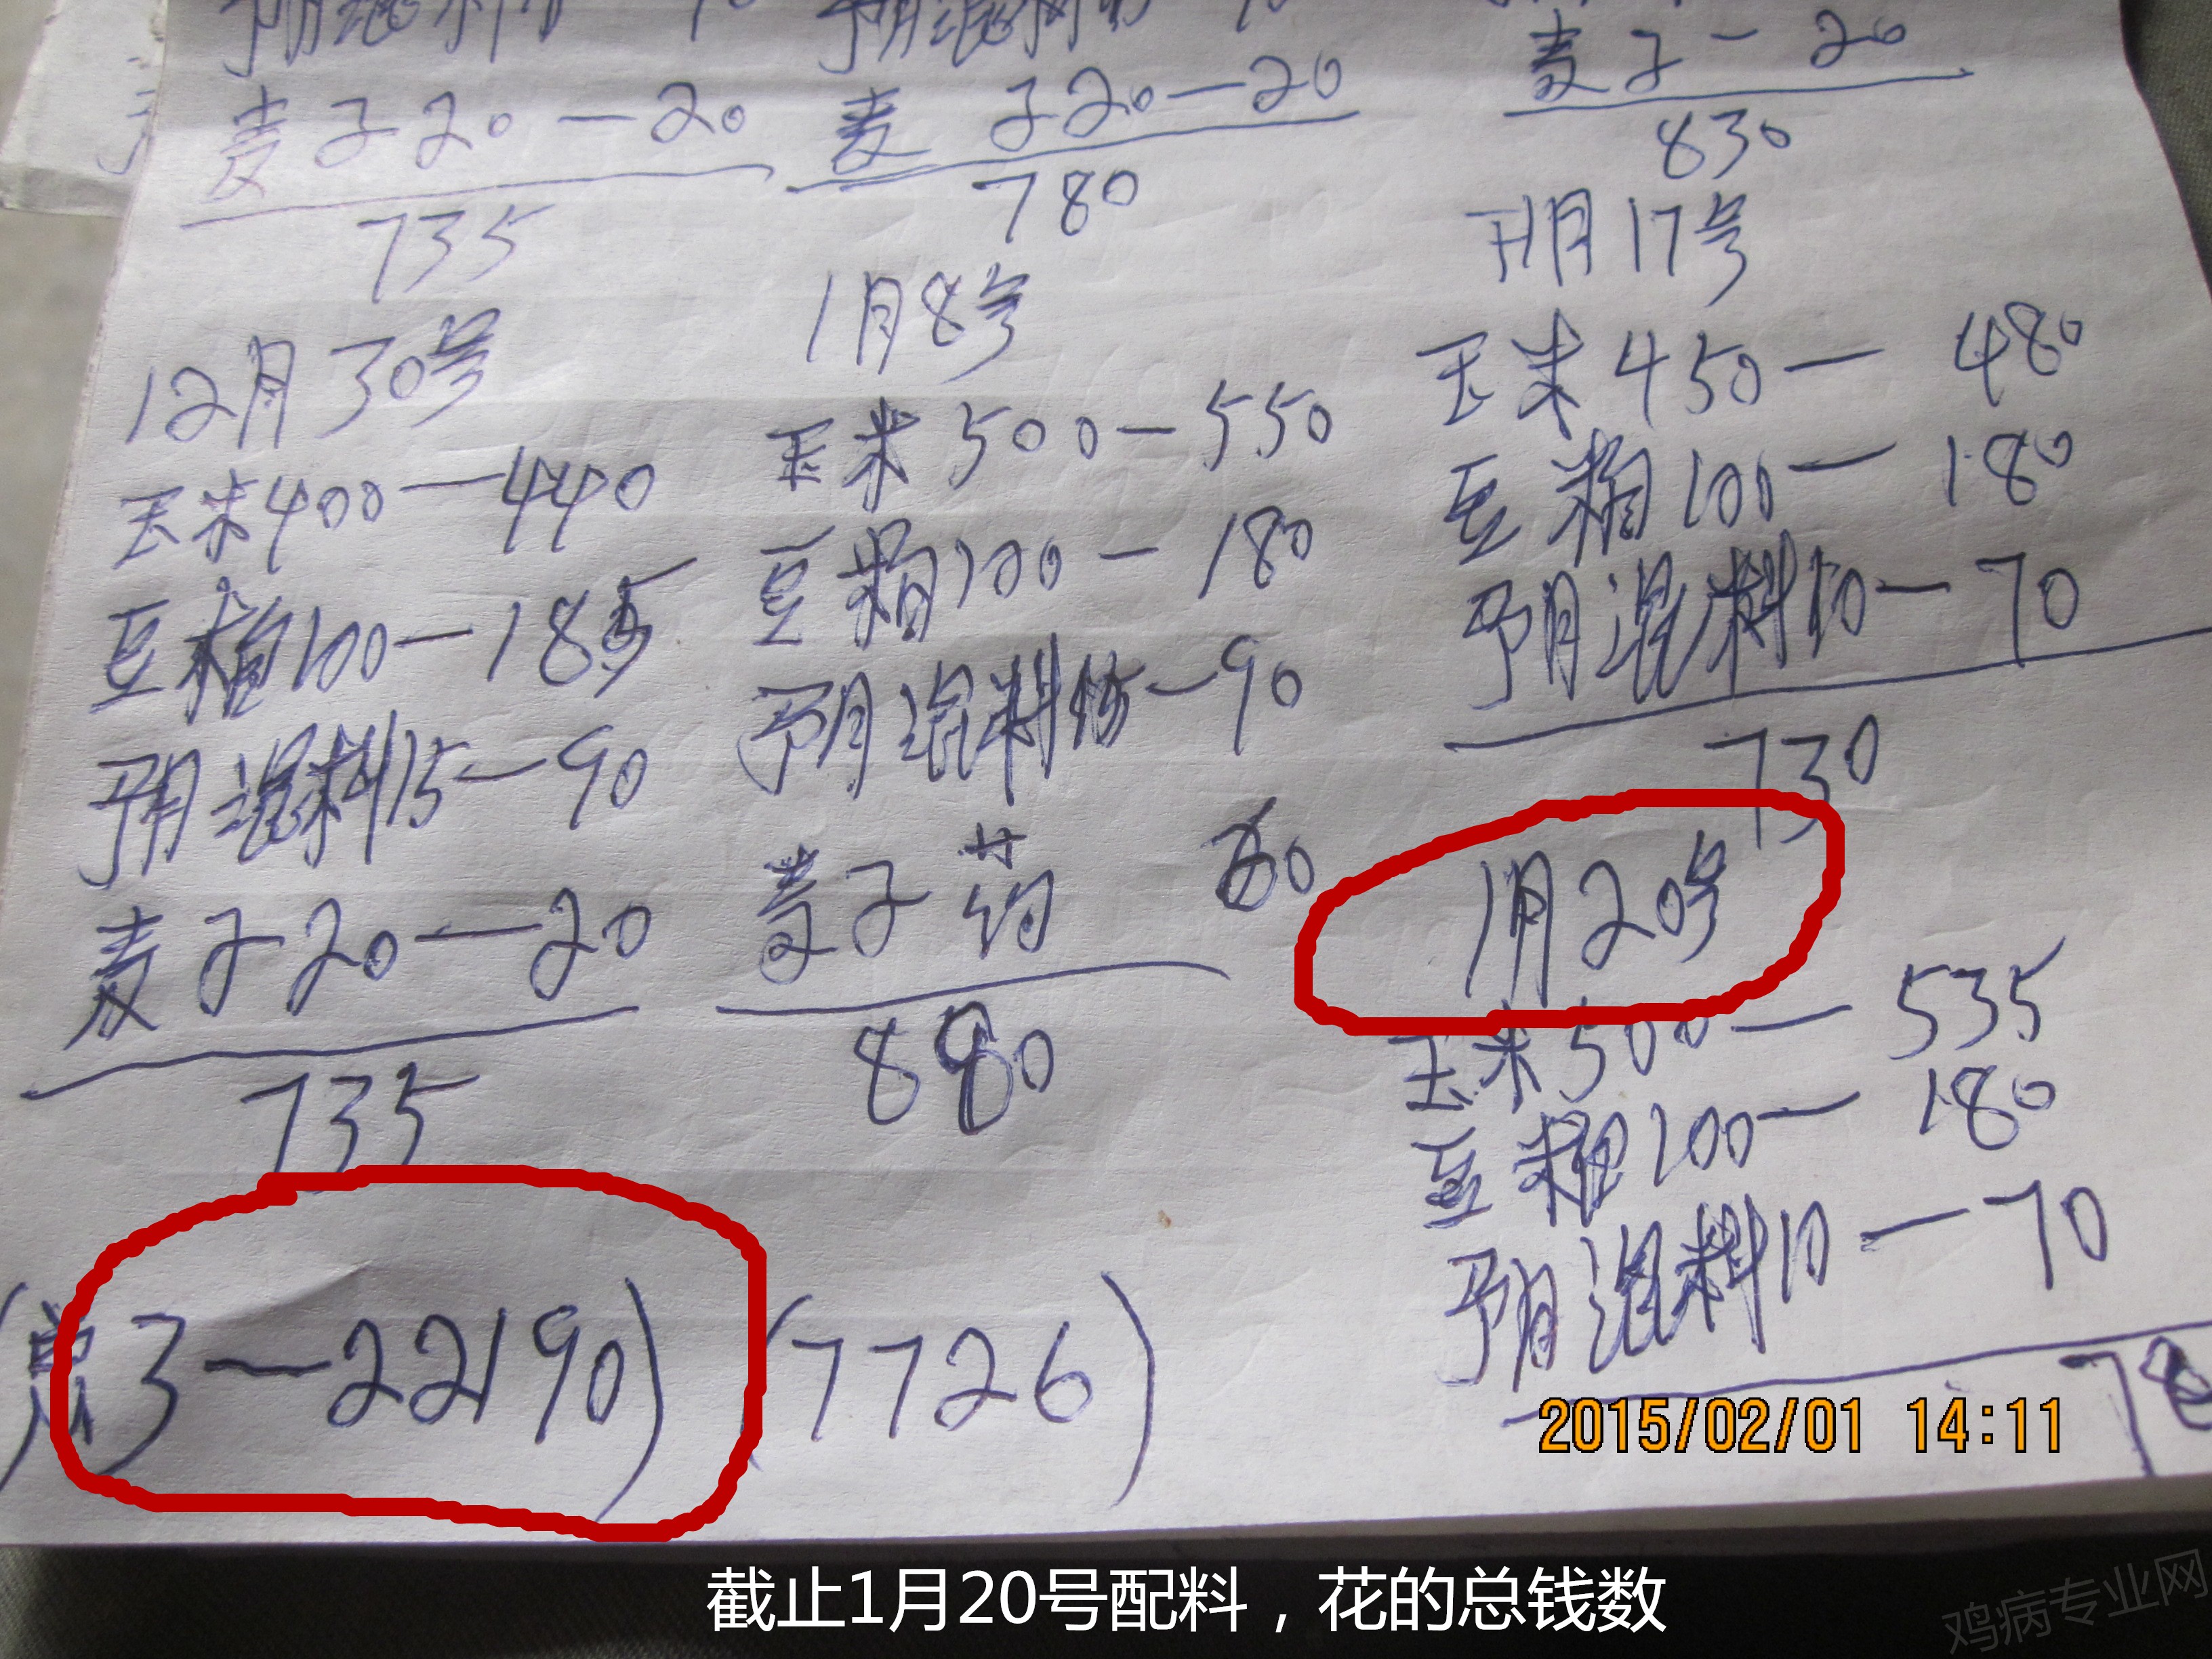 预混料
麦子20—20
735
12月30号
玉米400—440
豆粕100—185
预混料15—90
麦子20—20
735
(总3—22190)
预混料
麦子20—20
780
1月8号
玉米500—550
豆粕100—180
预混料15—90
麦子药 60
880
(7726)
麦子—20
830
1月17号
玉米450—480
豆粕100—180
预混料10—70
730
1月20号
玉米500—535
豆粕100—180
预混料10—70
2015/02/01 14:11
截止1月20号配料，花的总钱数
鸡病专业网